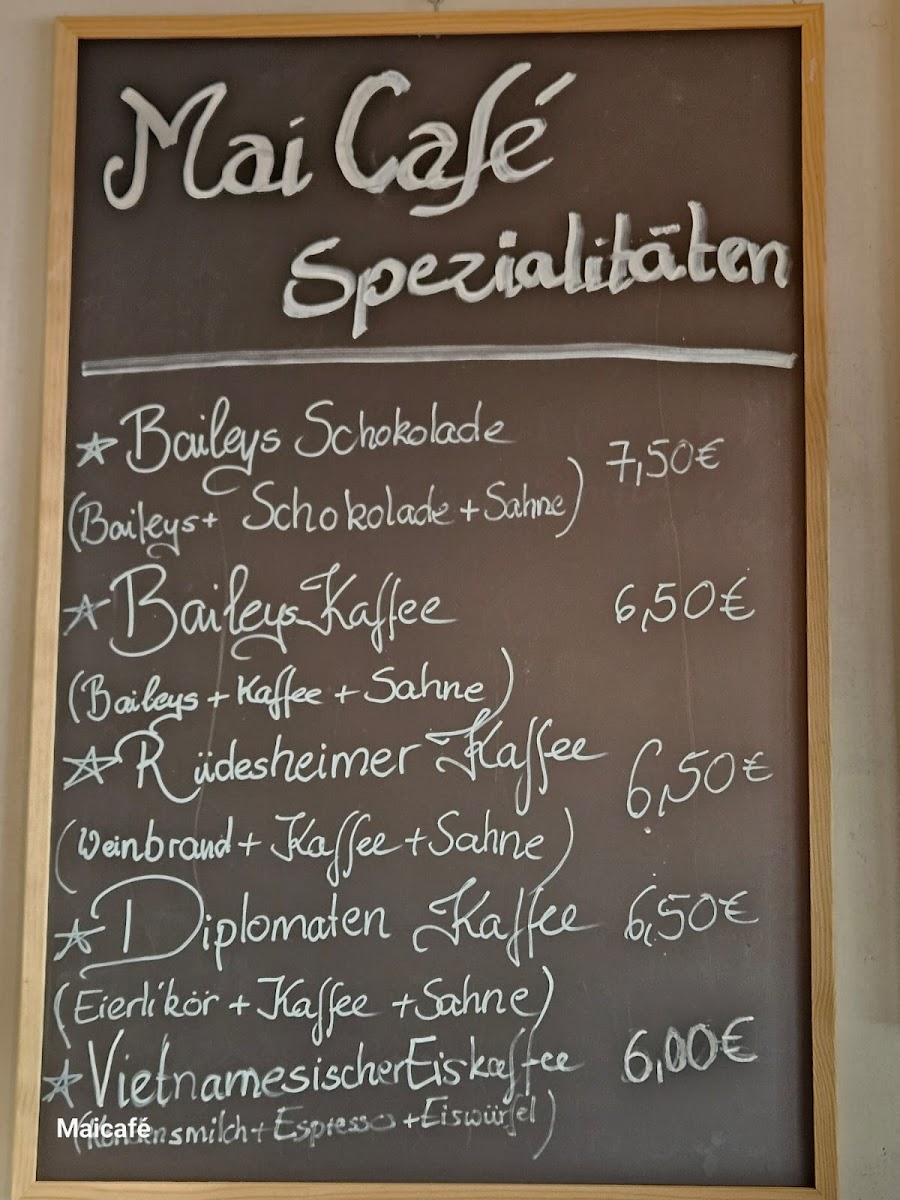 Mai Café
Spezialitäten
Baileys Schokolade 7,50€
(Baileys + Schokolade + Sahne)
Baileys Kaffee 6,50€
(Baileys + Kaffee + Sahne)
Rüdesheimer Kaffee 6,50€
(Weinbrand + Kaffee + Sahne)
Diplomaten Kaffee 6,50€
(Eierlikör + Kaffee + Sahne)
Vietnamesischer Eiskaffee 6,00€
(Kondensmilch + Espresso + Eiswürfel)
Maicafé